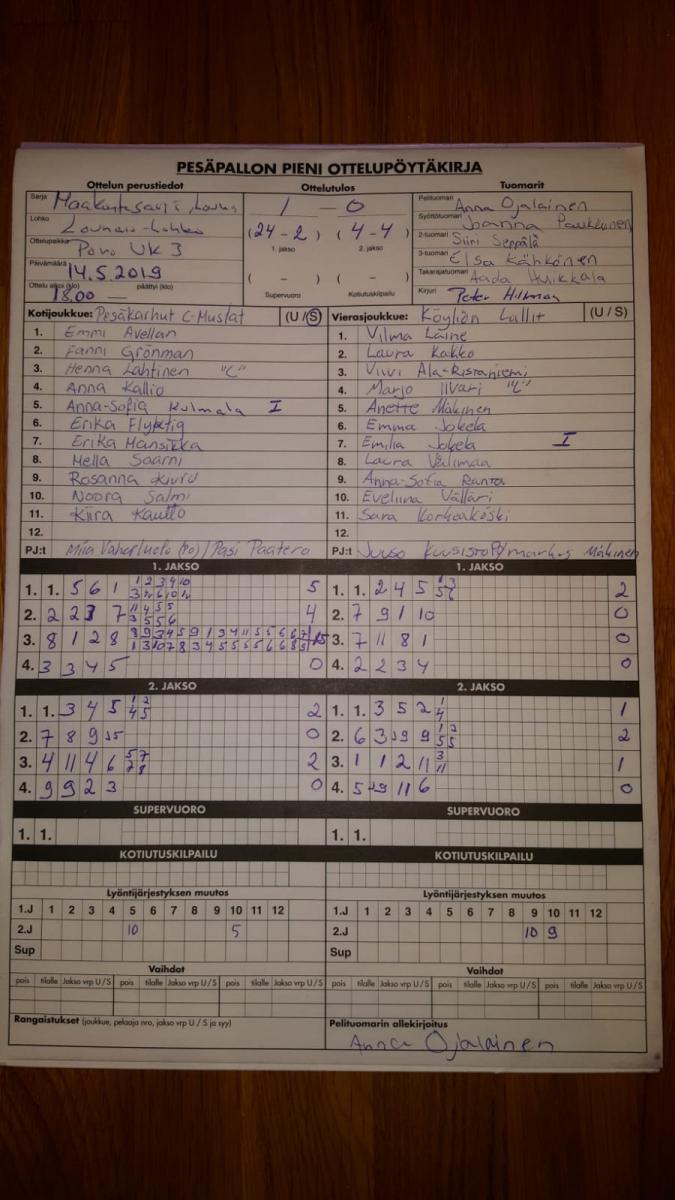 PESÄPALLON PIENI OTTELUPÖYTÄKIRJA
Ottelun perustiedot
Ottelutulos
Tuomarit
Sarja
Lohko
Ottelupaikka Poro UK 3
Päivämäärä 14.5.2019
Ottelu alkoi (klo) 18.00 — päättyi (klo)
1 — 0
(24 - 2) (4 - 4)
1. jakso 2. jakso
( - ) ( - )
Supervuoro Kotiutuskilpailu
Pelituomari Anna Ojalainen
Syöttötuomari Joanna Paukkunen
2-tuomari Siiri Seppälä
3-tuomari Elsa Kähkönen
Takarajatuomari Aada
Kirjuri Peter
Kotijoukkue: Pesäkarhut C-Mustat (U / S)
1. Emmi Avellan
2. Fanni Grönman
3. Henna Lahtinen "C"
4. Anna Kallio
5. Anna-Sofia Kulmala I
6. Erika
7. Erika Mansikka
8. Hella Saarni
9. Rosanna
10. Noora Salmi
11. Kiira Kautto
12.
PJ:t Miia / Pasi Paatero
Vierasjoukkue: Köyliön Lallit (U / S)
1. Vilma Laine
2. Laura Kakko
3. Viivi Ala-Ristaniemi
4. Marjo Ilvari "C"
5. Anette Mäkinen
6. Emma Jokela
7. Emilia Jokela I
8. Laura Välimaa
9. Anna-Sofia Ranta
10. Eveliina
11. Sara Korkeakoski
12.
PJ:t Juuso Mäkinen
1. JAKSO
1. 1. 5 6 1 5
2. 2 2 3 7 4
3. 8 1 2 8 15
4. 3 3 4 5 0
1. JAKSO
1. 1. 2 4 5 2
2. 7 9 1 10 0
3. 7 11 8 1 0
4. 2 2 3 4 0
2. JAKSO
1. 1. 3 4 5 2
2. 7 8 9 0
3. 4 11 4 6 2
4. 9 9 2 3 0
2. JAKSO
1. 1. 3 5 2 1
2. 6 3 9 2
3. 1 1 2 11 1
4. 5 11 6 0
SUPERVUORO
1. 1.
SUPERVUORO
1. 1.
KOTIUTUSKILPAILU
KOTIUTUSKILPAILU
Lyöntijärjestyksen muutos
1.J 1 2 3 4 5 6 7 8 9 10 11 12
2.J 10 5
Sup
Lyöntijärjestyksen muutos
1.J 1 2 3 4 5 6 7 8 9 10 11 12
2.J 10 9
Sup
Vaihdot
pois tilalle Jakso vrp U / S pois tilalle Jakso vrp U / S pois tilalle Jakso vrp U / S
Vaihdot
pois tilalle Jakso vrp U / S pois tilalle Jakso vrp U / S pois tilalle Jakso vrp U / S
Rangaistukset (joukkue, pelaaja nro, jakso vrp U / S ja syy)
Pelituomarin allekirjoitus
Anna Ojalainen